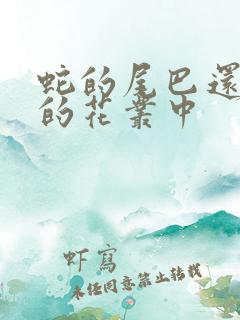 蛇的尾巴還
的花叢中
虾寫
未经同意禁止转载